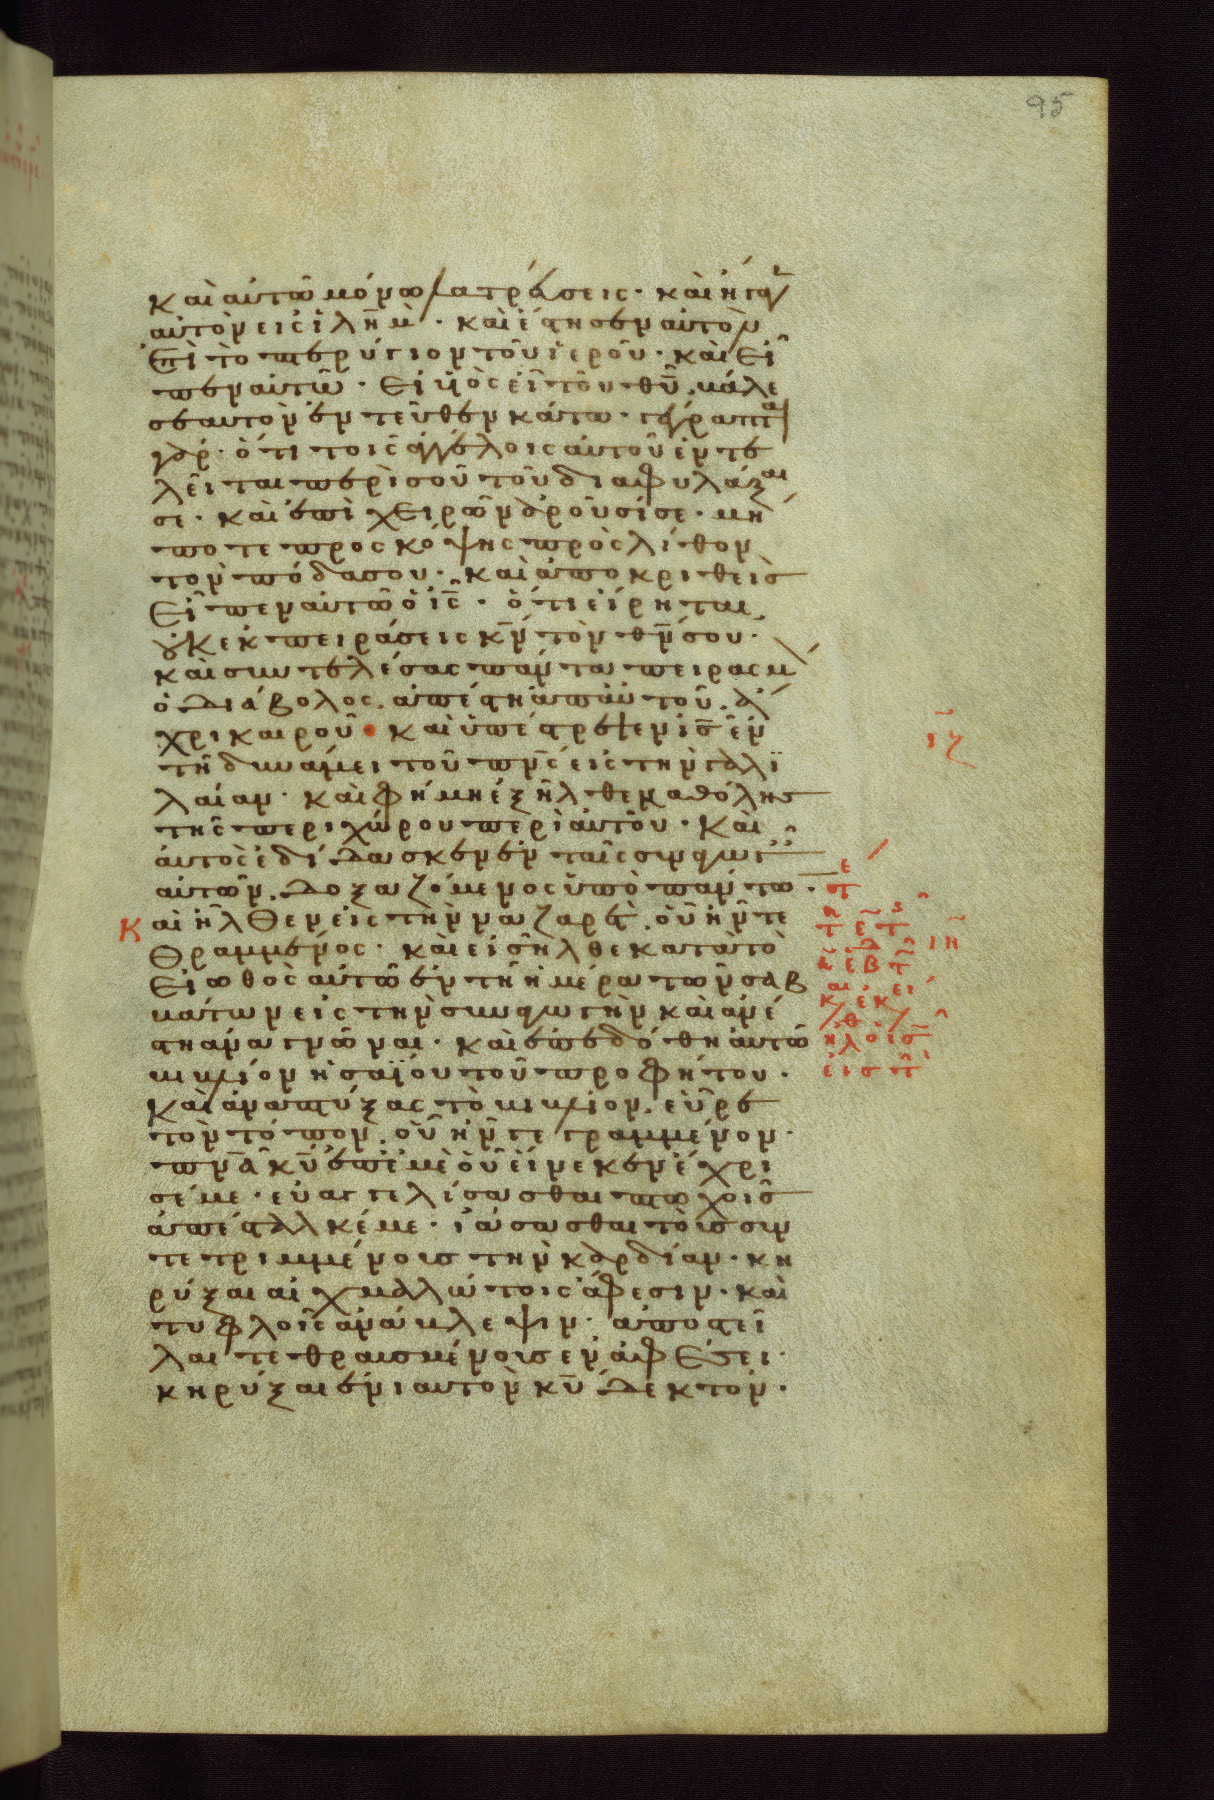 95
καὶ αὐτῶ μόνω λατρεύσεις· καὶ ἤγαγεν
αὐτὸν εἰς ἱλῆμ· καὶ ἔστησεν αὐτὸν
ἐπὶ τὸ πτερύγιον τοῦ ἱεροῦ· καὶ εἶ
πεν αὐτῶ· εἰ υἱὸς εἶ τοῦ θυ̅, βάλε
σεαυτὸν ἐντεῦθεν κάτω· γέγραπται
γάρ· ὅτι τοῖς ἀγγέλοις αὐτοῦ ἐντε
λεῖται περὶ σοῦ τοῦ διαφυλάξαι
σε· καὶ ἐπὶ χειρῶν ἀροῦσί σε· μή
ποτε προσκόψης πρὸς λίθον
τὸν πόδα σου· καὶ ἀποκριθεὶς
εἶπεν αὐτῶ ὁ ις̅· ὅτι εἴρηται,
οὐκ ἐκπειράσεις κν̅ τὸν θν̅ σου·
καὶ συντελέσας πάντα πειρασμὸν
ὁ διάβολος, ἀπέστη ἀπ' αὐτοῦ, ἄ
χρι καιροῦ· καὶ ὑπέστρεψεν ὁ ις̅ ἐν
τῆ δυνάμει τοῦ πνς̅ εἰς τὴν γαλι
λαίαν· καὶ φήμη ἐξῆλθεν καθ' ὅλης
τῆς περιχώρου περὶ αὐτοῦ· καὶ
αὐτὸς ἐδίδασκεν ἐν ταῖς συναγωγαῖς
αὐτῶν, δοξαζόμενος ὑπὸ πάντων·
καὶ ἦλθεν εἰς τὴν ναζαρέτ, οὗ ἦν τε
θραμμένος· καὶ εἰσῆλθε κατὰ τὸ
εἰωθὸς αὐτῶ ἐν τῆ ἡμέρα τῶν σαβ
βάτων εἰς τὴν συναγωγὴν καὶ ἀνέ
στη ἀναγνῶναι· καὶ ἐπεδόθη αὐτῶ
βιβλίον ἠσαΐου τοῦ προφήτου·
καὶ ἀναπτύξας τὸ βιβλίον, εὗρε
τὸν τόπον, οὗ ἦν γεγραμμένον·
πνα̅ κυ̅ ἐπ' ἐμὲ οὗ εἵνεκεν ἔχρι
σέ με· εὐαγγελίσασθαι πτωχοῖς
ἀπέσταλκέ με· ἰάσασθαι τοὺς συν
τετριμμένους τὴν καρδίαν· κη
ρύξαι αἰχμαλώτοις ἄφεσιν· καὶ
τυφλοῖς ἀνάβλεψιν· ἀποστεῖ
λαι τεθραυσμένους ἐν ἀφέσει·
κηρύξαι ἐνιαυτὸν κυ̅ δεκτόν·
ιζ
ιη